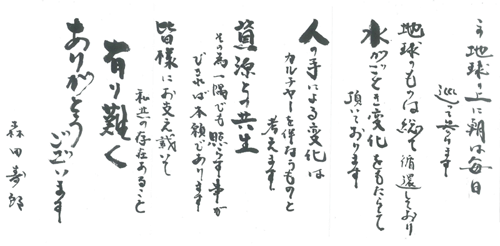 この地球の上に朝は毎日
巡って参ります
地球のものは総て循環しており
水がごとき変化をもたらして
頂いております
人の手による変化は
カルチャーを伴なうものと
考えます
資源との共生
その為一隅でも照らす事が
できれば本願であります
皆様にお支え戴いて
私共の存在あること
有り難く
ありがとう
ございます
森田寿郎